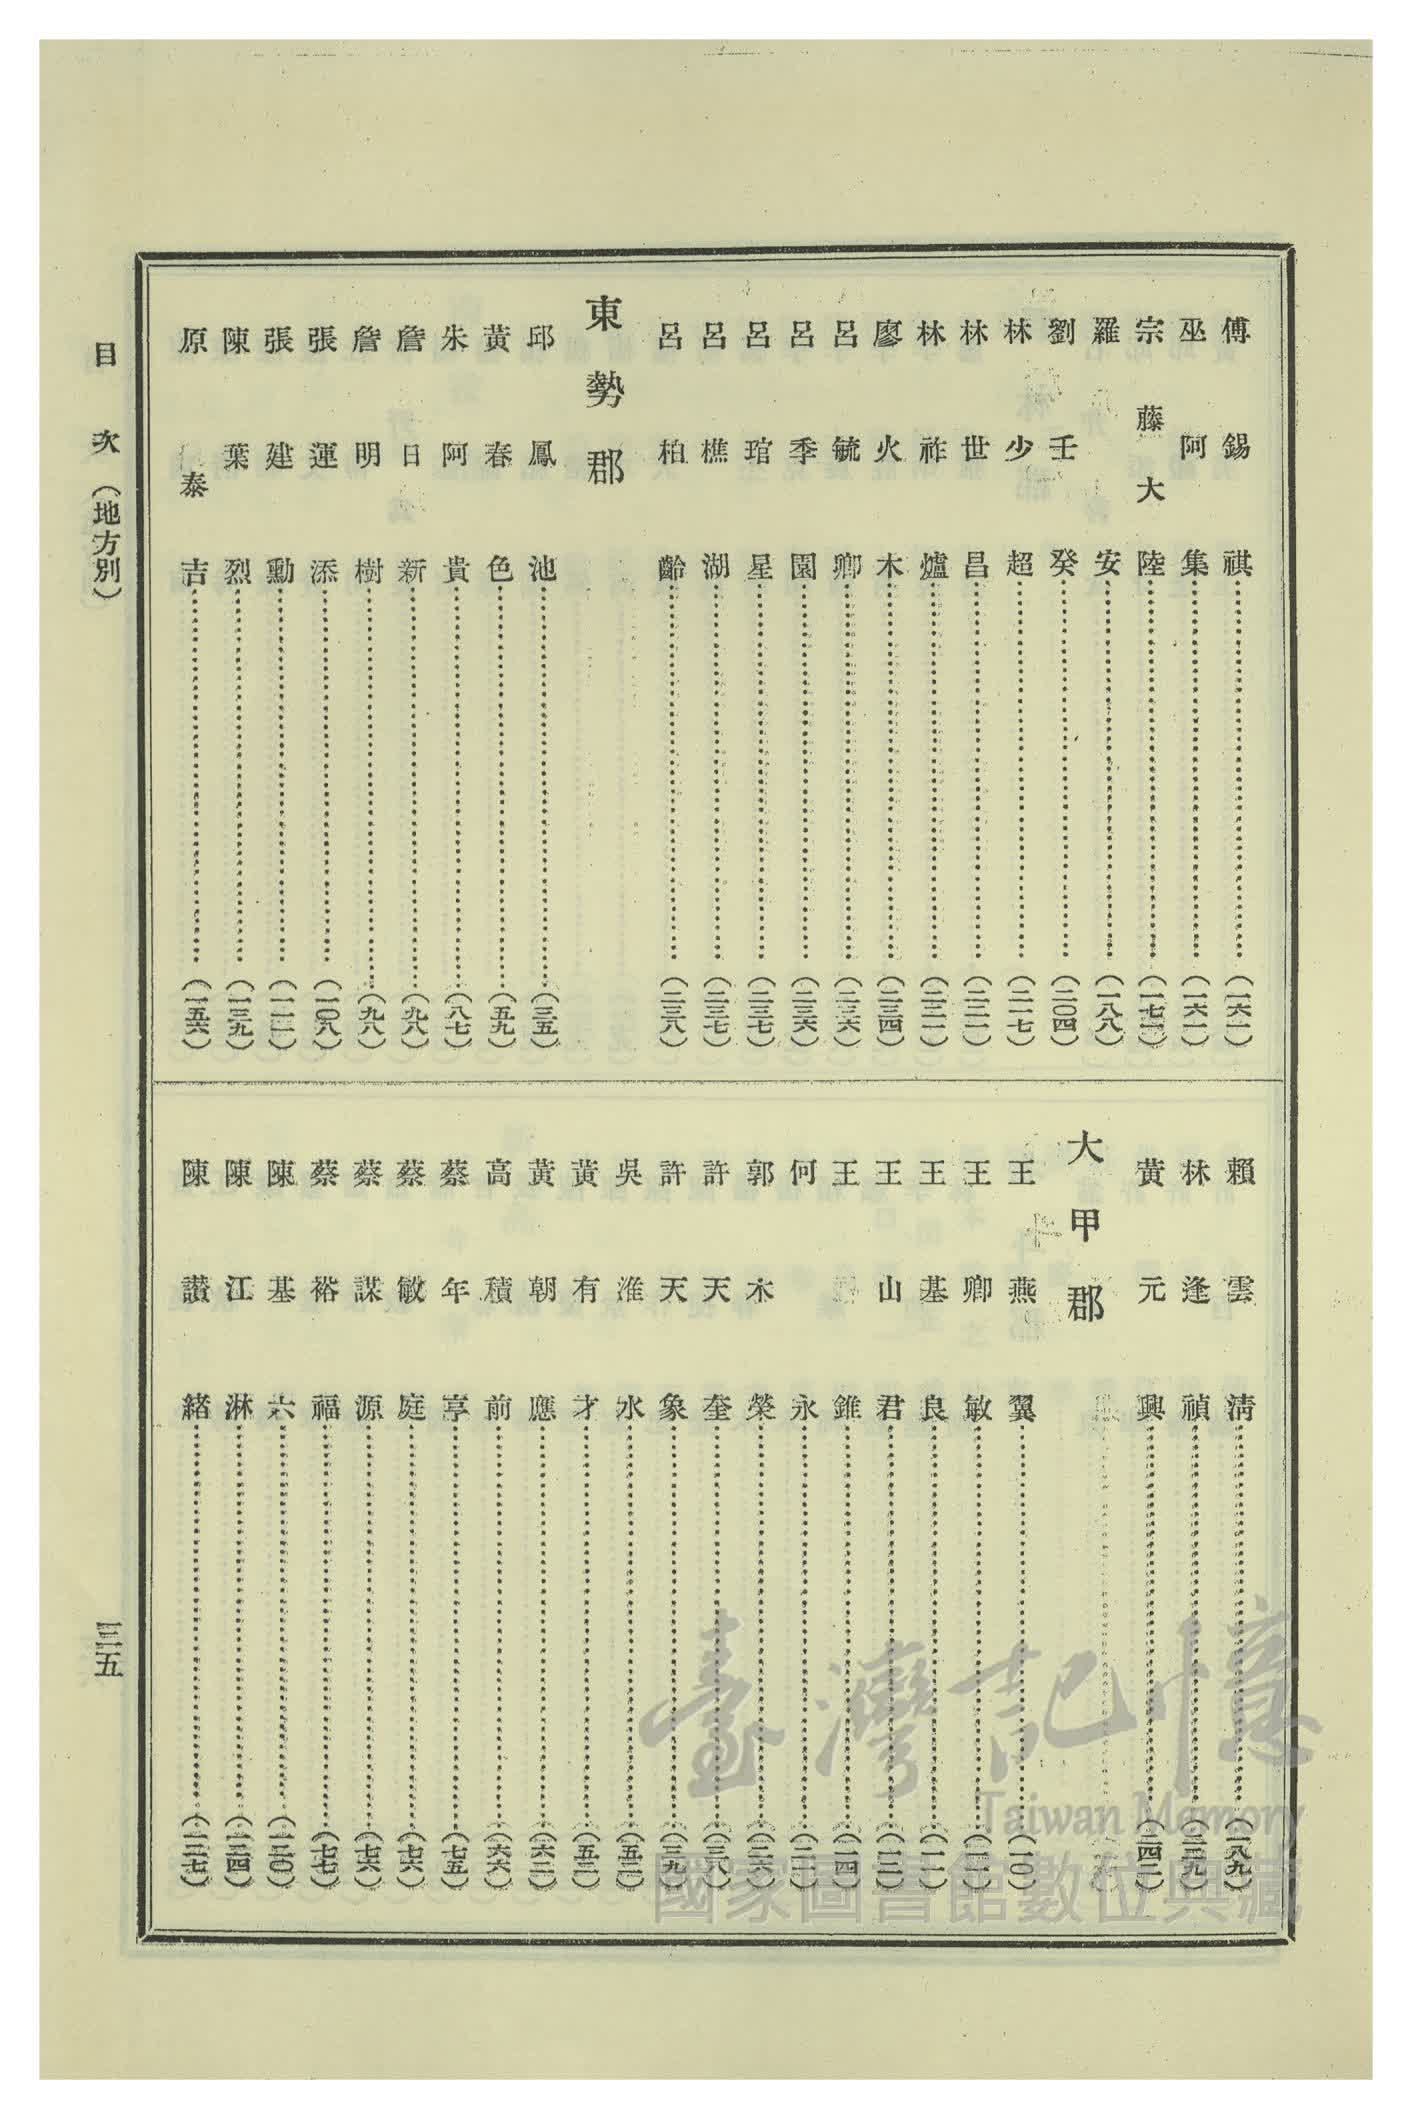 傅錫祺……(一六一)
巫阿集……(一六一)
宗藤大陸……(一七三)
羅安……(一八八)
劉壬癸……(二〇四)
林少超……(二一七)
林世昌……(二二一)
林祚爐……(二二一)
廖火木……(二三四)
呂毓卿……(二三六)
呂季園……(二三六)
呂琯星……(二三七)
呂樵湖……(二三七)
呂柏齡……(二三八)
東勢郡
邱鳳池……(三五)
黃春色……(五九)
朱阿貴……(八七)
詹日新……(九八)
詹明樹……(九八)
張運添……(一〇八)
張建勳……(一一一)
陳葉烈……(一三九)
原泰吉……(一五六)
賴雲淸……(一八九)
林逢禎……(二一九)
黃元興……(二四二)
大甲郡
王燕翼……(一〇)
王卿敏……(一一)
王基良……(一一)
王山君……(一二)
王錐……(一四)
何永……(二一)
郭木榮……(二六)
許天奎……(三八)
許天象……(三九)
吳淮水……(五二)
黃有才……(五三)
黃朝應……(六二)
高積前……(六六)
蔡年享……(七五)
蔡敏庭……(七六)
蔡謀源……(七六)
蔡裕福……(七七)
陳基六……(一二〇)
陳江淋……(一二四)
陳讚緒……(一二七)
目次(地方別)
三五
臺灣記憶
Taiwan Memory
國家圖書館數位典藏